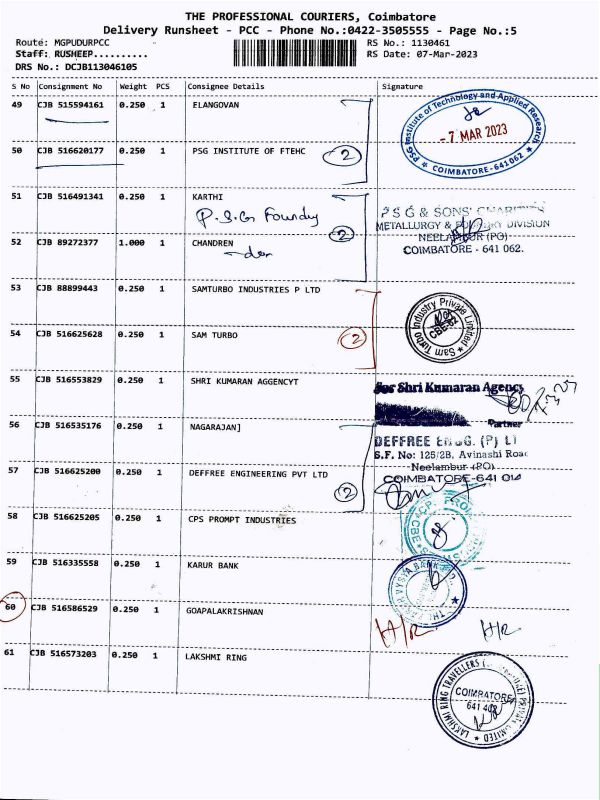 THE PROFESSIONAL COURIERS, Coimbatore
Delivery Runsheet - PCC - Phone No.:0422-3505555 - Page No.:5
Route: MGPUDURPCC
RS No.: 1130461
Staff: RUSHEEP..........
RS Date: 07-Mar-2023
DRS No.: DCJB113046105
S No Consignment No Weight PCS Consignee Details Signature
49 CJB 515594161 0.250 1 ELANGOVAN
PSG Institute of Technology and Applied Research
- 7 MAR 2023
COIMBATORE - 641 062
50 CJB 516620177 0.250 1 PSG INSTITUTE OF FTEHC 2
51 CJB 516491341 0.250 1 KARTHI
P.S.G Foundry 2
P S G & SONS' CHARITIES
METALLURGY & FOUNDRY DIVISION
NEELAMBUR (PO)
COIMBATORE - 641 062.
52 CJB 89272377 1.000 1 CHANDREN
53 CJB 88899443 0.250 1 SAMTURBO INDUSTRIES P LTD
Sam Turbo Industry Private Limited
CBE-62
54 CJB 516625628 0.250 1 SAM TURBO 2
55 CJB 516553829 0.250 1 SHRI KUMARAN AGGENCYT
for Shri Kumaran Agency
Partner
56 CJB 516535176 0.250 1 NAGARAJAN]
DEFFREE ENGG. (P) LT
S.F. No: 125/2B, Avinashi Road
Neelambur (PO)
COIMBATORE-641 014
57 CJB 516625200 0.250 1 DEFFREE ENGINEERING PVT LTD 2
58 CJB 516625205 0.250 1 CPS PROMPT INDUSTRIES
59 CJB 516335558 0.250 1 KARUR BANK
60 CJB 516586529 0.250 1 GOAPALAKRISHNAN
H/R H/R
61 CJB 516573203 0.250 1 LAKSHMI RING
LAKSHMI RING TRAVELLERS PRIVATE LIMITED
COIMBATORE
641 402